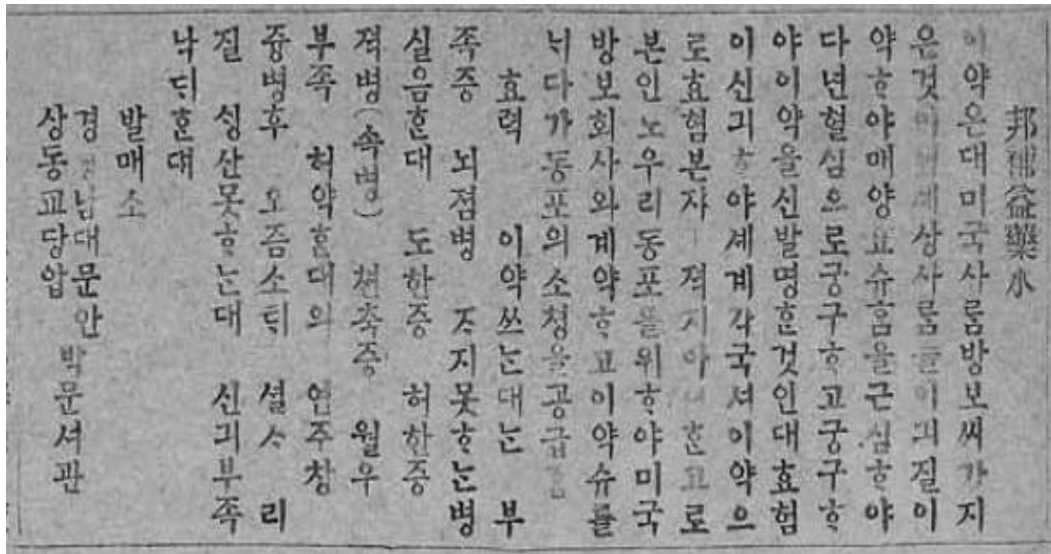 邦補益藥水
이약은대미국사ᄅᆞᆷ방보씨가지
은것 상사ᄅᆞᆷ들이긔질이
약ᄒᆞ야매양요슈ᄒᆞᆷ을근심ᄒᆞ야
다년혈심으로궁구ᄒᆞ고궁구ᄒᆞ
야이약을신발명ᄒᆞᆫ것인대효험
이신긔ᄒᆞ야셰계각국셔이약으
로효험본쟈ㅣ젹지아니ᄒᆞᆫ고로
본인노우리동포를위ᄒᆞ야미국
방보회사와계약ᄒᆞ고이약슈를
ᄂᆡ다가동포의소청을공급ᄒᆞᆷ
효력 이약쓰ᄂᆞᆫ대ᄂᆞᆫ 부
족증 뇌졈병 ᄌᆞ지못ᄒᆞᄂᆞᆫ병
실음ᄒᆞᆫ대 도한증 허한증
젹병(속병) ᄎᆡ축증 월우
부족 허약ᄒᆞᆫ대의 연주창
즁병후 오즘소ᄐᆡ 셜ᄉᆞ 리
질 ᄉᆡᆼ산못ᄒᆞᄂᆞᆫ대 신긔부족
낙ᄐᆡᄒᆞᆫ대
발매소
경 남대문안
상동교당압 박문셔관